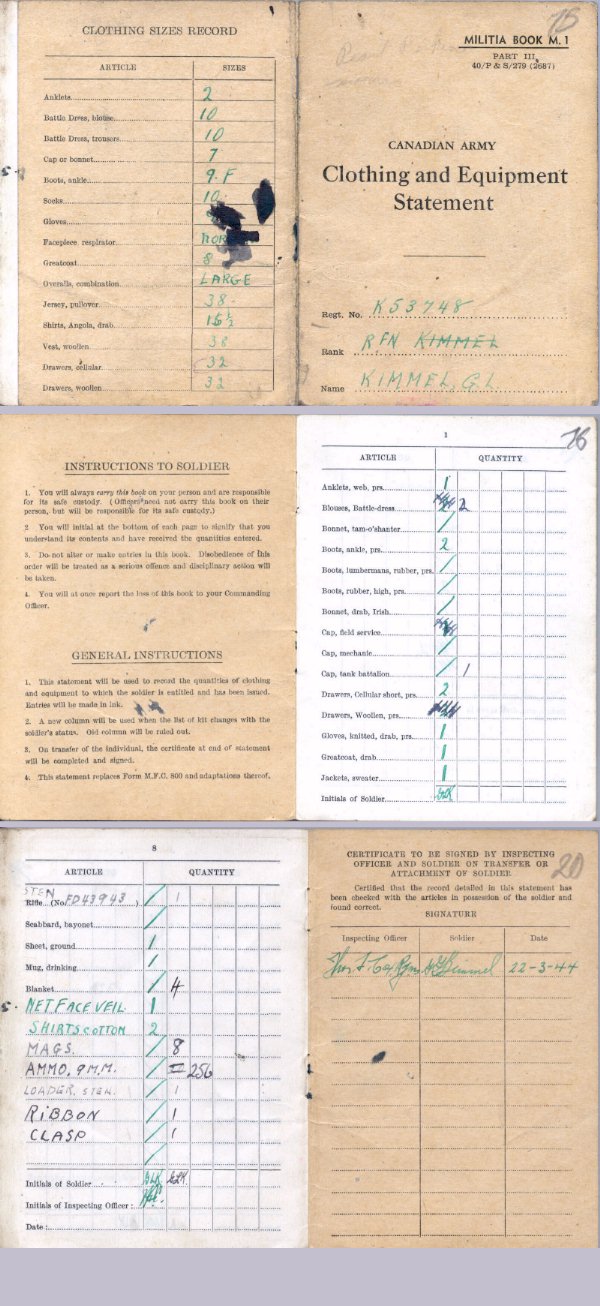 CLOTHING SIZES RECORD
ARTICLE SIZES
Anklets 2
Battle Dress, blouse 10
Battle Dress, trousers 10
Cap or bonnet 7
Boots, ankle 9-F
Socks 10
Gloves
Facepiece, respirator NOR
Greatcoat 8
Overalls, combination LARGE
Jersey, pullover 38
Shirts, Angola, drab 15½
Vest, woollen 38
Drawers, cellular 32
Drawers, woollen 32
75
MILITIA BOOK M. 1
PART III
40/P & S/279 (2687)
CANADIAN ARMY
Clothing and Equipment
Statement
Regt. No. K53748
Rank RFN KIMMEL
Name KIMMEL, G.L
INSTRUCTIONS TO SOLDIER
1. You will always carry this book on your person and are responsible
for its safe custody. (Officers need not carry this book on their
person, but will be responsible for its safe custody.)
2 You will initial at the bottom of each page to signify that you
understand its contents and have received the quantities entered.
3. Do not alter or make entries in this book. Disobedience of this
order will be treated as a serious offence and disciplinary action will
be taken.
4. You will at once report the loss of this book to your Commanding
Officer.
GENERAL INSTRUCTIONS
1. This statement will be used to record the quantities of clothing
and equipment to which the soldier is entitled and has been issued.
Entries will be made in ink.
2. A new column will be used when the list of kit changes with the
soldier's status. Old column will be ruled out.
3. On transfer of the individual, the certificate at end of statement
will be completed and signed.
4. This statement replaces Form M.F.C. 800 and adaptations thereof.
1
76
ARTICLE QUANTITY
Anklets, web, prs. 1
Blouses, Battle-dress 2
Bonnet, tam-o'shanter /
Boots, ankle, prs. 2
Boots, lumbermans, rubber, prs. /
Boots, rubber, high, prs. /
Bonnet, drab, Irish /
Cap, field service
Cap, mechanic /
Cap, tank battalion / 1
Drawers, Cellular short, prs. 2
Drawers, Woollen, prs.
Gloves, knitted, drab, prs. 1
Greatcoat, drab 1
Jackets, sweater 1
Initials of Soldier GLK
8
ARTICLE QUANTITY
STEN
Rifle (No FD43943) / 1
Scabbard, bayonet /
Sheet, ground 1
Mug, drinking 1
Blanket / 4
NET FACE VEIL 1
SHIRTS COTTON 2
MAGS. / 8
AMMO, 9 M.M. / 256
LOADER, STEN. / 1
RIBBON / 1
CLASP / 1
/
Initials of Soldier GLK GLK.
Initials of Inspecting Officer:
Date:
20
CERTIFICATE TO BE SIGNED BY INSPECTING
OFFICER AND SOLDIER ON TRANSFER OR
ATTACHMENT OF SOLDIER
Certified that the record detailed in this statement has
been checked with the articles in possession of the soldier and
found correct.
SIGNATURE
Inspecting Officer Soldier Date
Kimmel 22-3-44